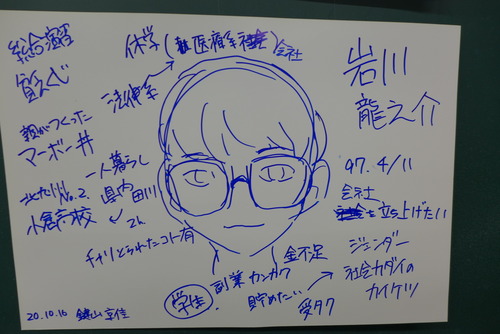 休学(医療系 会社
法律系
岩川
龍之介
親がつくった
マーボー丼
一人暮らし
県内 田川
No.2
小倉高校
2h
チャリとられたコト有
97. 4/11
会社
を立上げたい
ジェンダー
社会カダイの
カイケツ
金不足
副業カンカク
貯めたい
受タク
20.10.16